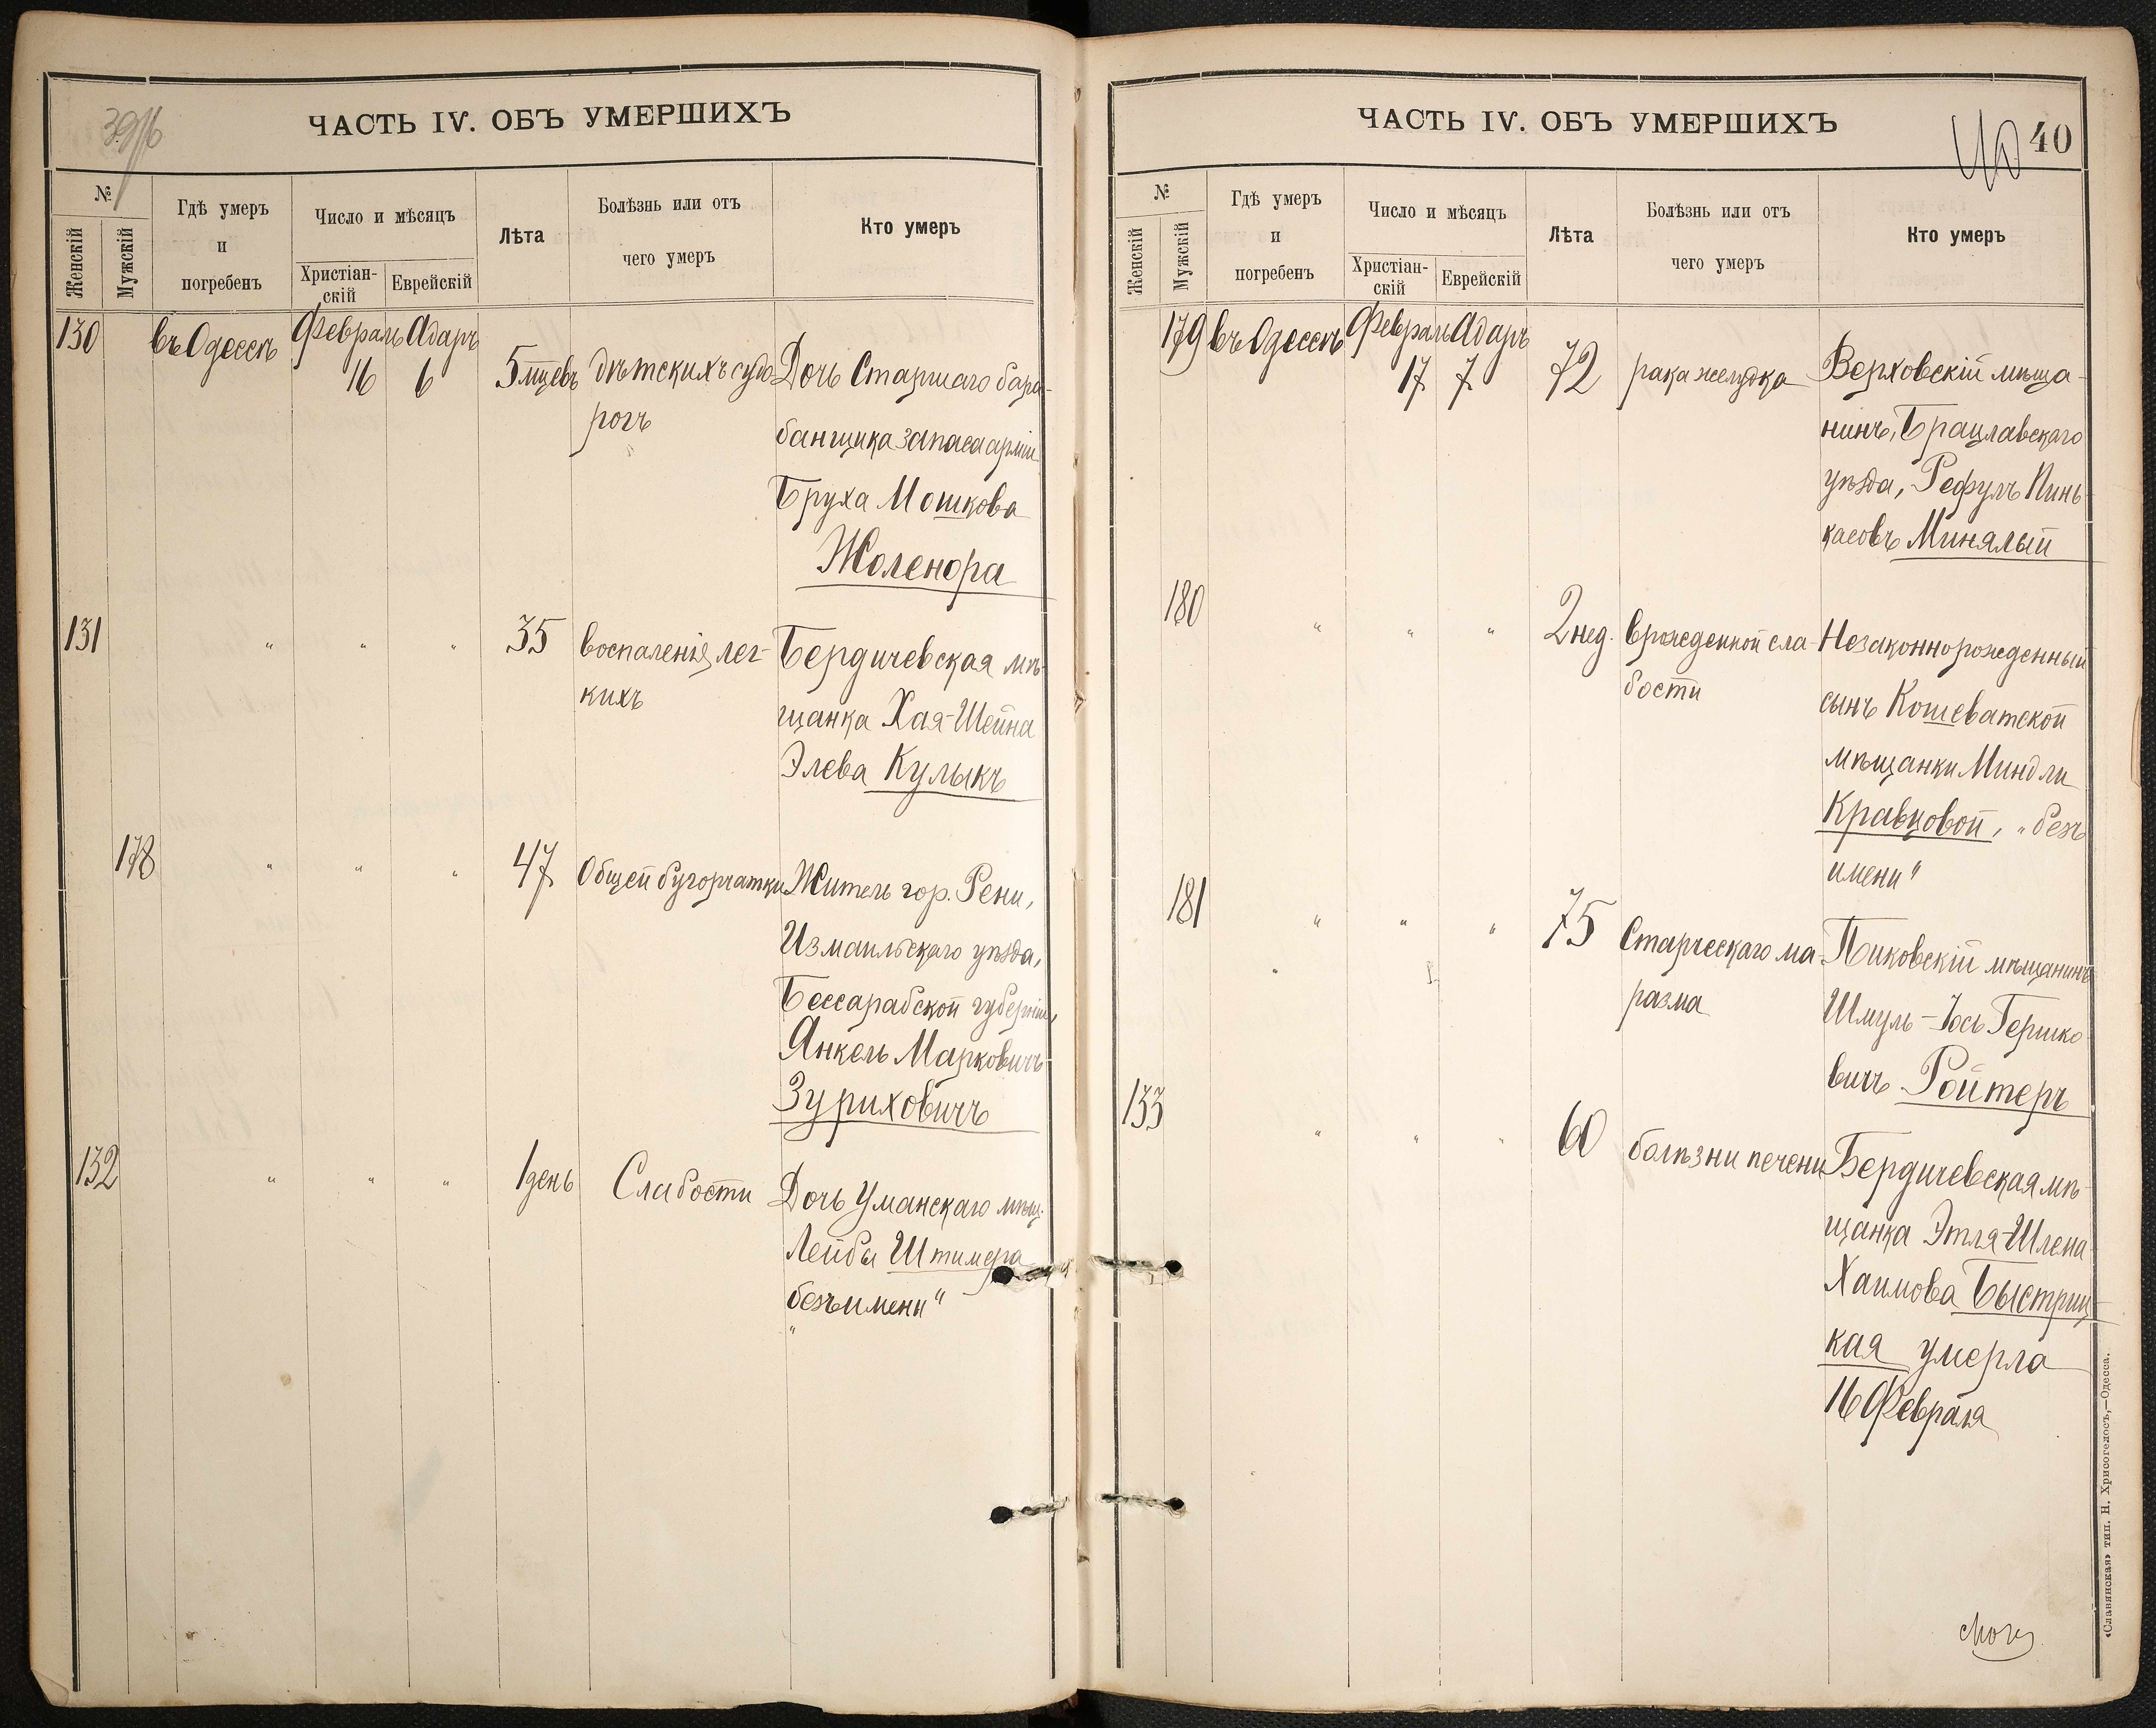 39/16
ЧАСТЬ IV. ОБЪ УМЕРШИХЪ
№
Женскій
Мужскій
Гдѣ умеръ
и
погребенъ
Число и мѣсяцъ
Христіан-
скій
Еврейскій
Лѣта
Болѣзнь или отъ
чего умеръ
Кто умеръ
130 въ Одессѣ Февраль Адаръ
16 6 5 мцевъ дѣтскихъ судо Дочь Старшаго бара-
рогъ банщика запаса арміи
Бруха Мошкова
Жоленора
131 " " " 35 воспаленія лег- Бердичевская мѣ-
кихъ щанка Хая-Шейна
Элева Кулыкъ
178 " " " 47 Общей бугорчатки Житель гор. Рени,
Измаильскаго уѣзда,
Бессарабской губерніи,
Янкель Марковичъ
Зуриховичъ
132 " " " 1 день Слабости Дочь Уманскаго мѣщ.
Лейбы Штимера
"безъ имени"
ЧАСТЬ IV. ОБЪ УМЕРШИХЪ
40 40
№
Женскій
Мужскій
Гдѣ умеръ
и
погребенъ
Число и мѣсяцъ
Христіан-
скій
Еврейскій
Лѣта
Болѣзнь или отъ
чего умеръ
Кто умеръ
179 въ Одессѣ Февраль Адаръ
17 7 72 рака желудка Верховскій мѣща-
нинъ, Брацлавскаго
уѣзда, Рефулъ Пинь-
касовъ Минялый
180 " " " 2 нед. врожденной сла- Незаконнорожденный
бости сынъ Кошеватской
мѣщанки Миндли
Кравцовой, "безъ
имени"
181 " " " 75 Старческаго ма- Пиковскій мѣщанинъ
разма Шмуль-Іось Гершко
вичъ Ройтеръ
133 " " " 60 болѣзни печени Бердичевская мѣ-
щанка Этля-Шлема
Хаимова Быстриц-
кая умерла
16 Февраля
«Славянская» тип. Н. Хрисогелосъ,—Одесса.